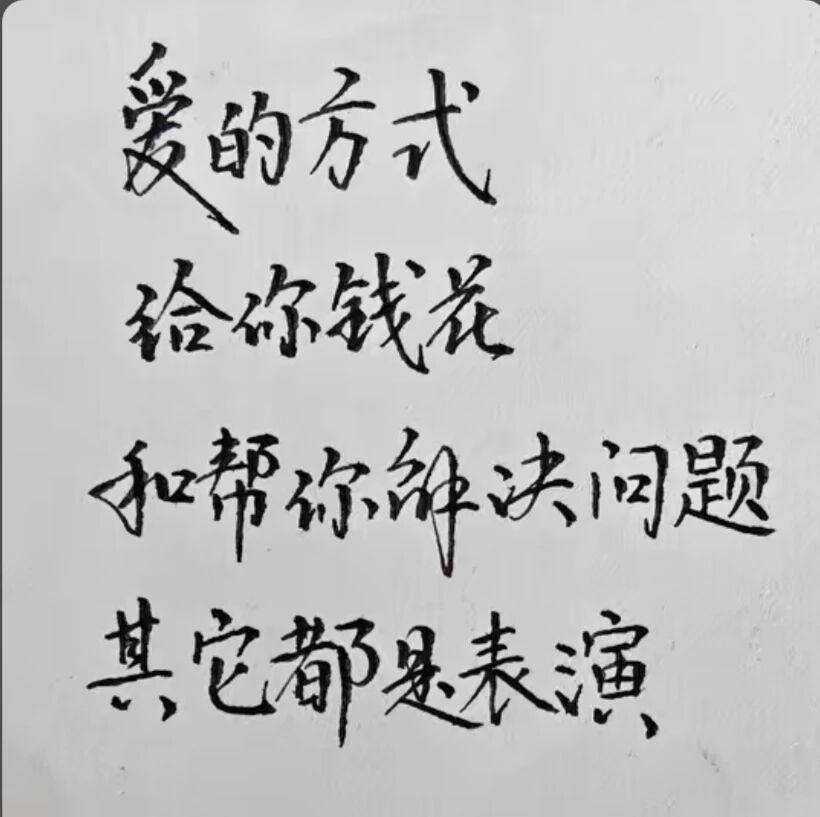 爱的方式
给你钱花
和帮你解决问题
其它都是表演